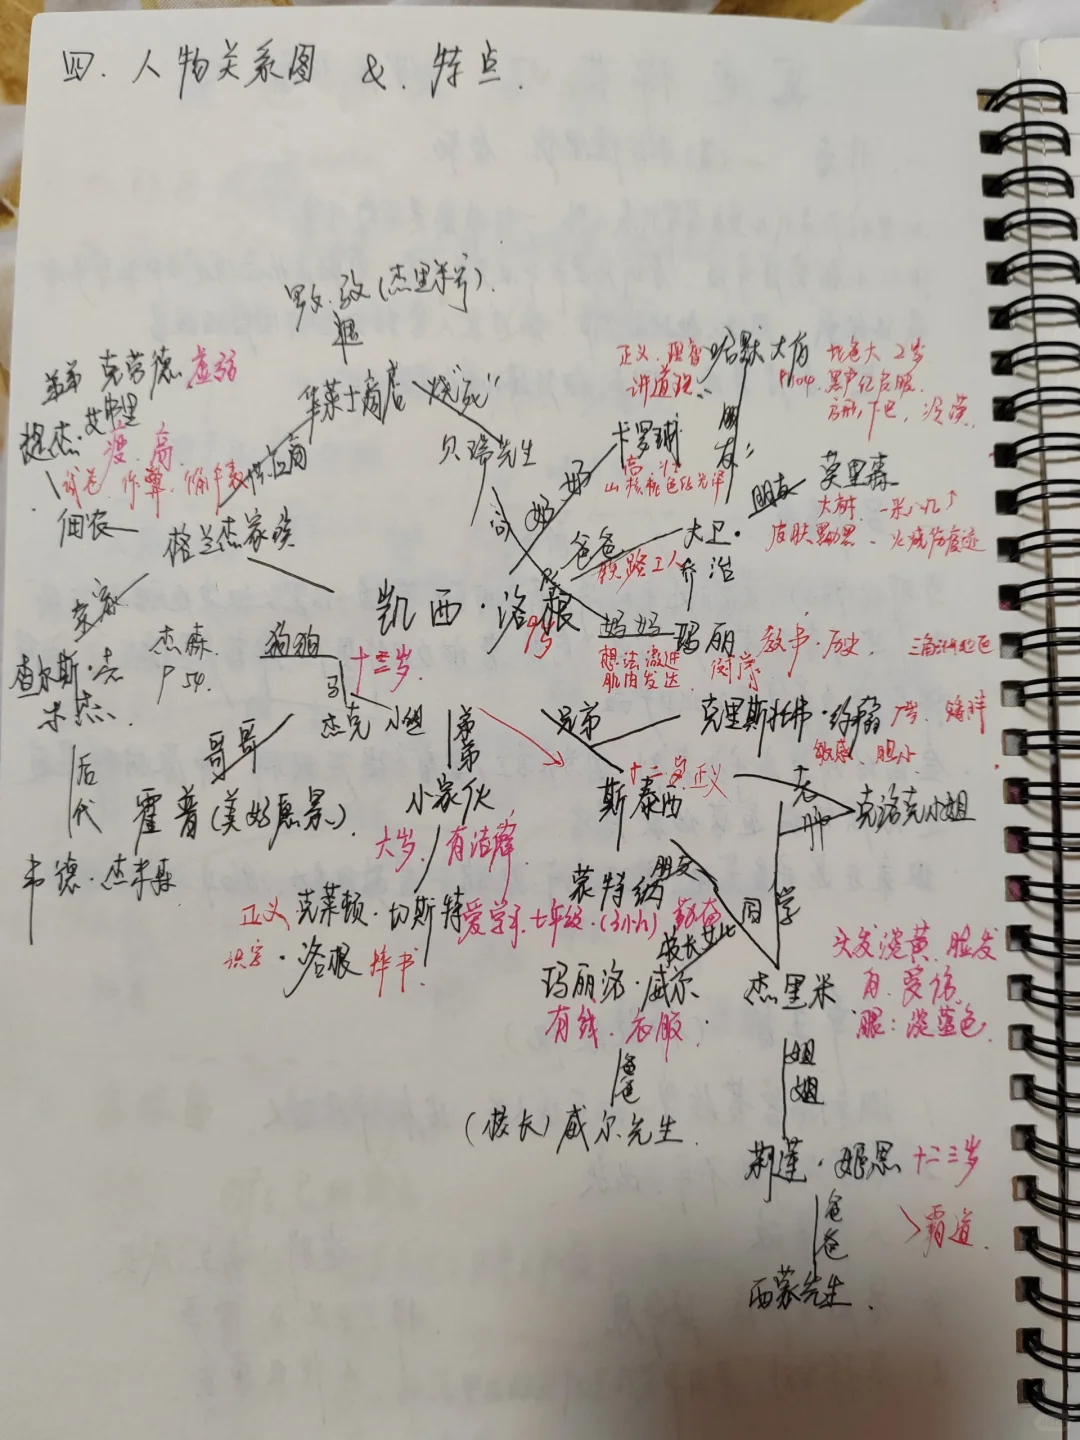 四. 人物关系图 & 特点.
(杰里米号).
弟弟 克劳德 虚弱
华莱士商店 烧"死"
贝瑞先生
正义.
讲道理
哈默 大 2岁
P104.
方形下巴,
朋友
卡罗琳
奶奶
高
山核桃色
朋友 莫里森
大树. 一米八几↑
皮肤黝黑. 火烧伤痕迹
瘦. 高.
试卷. 作弊.
供应商
佃农 格兰杰家族
爸爸 大卫.
铁路工人 乔治
凯西·洛根
9岁
妈妈 玛丽 教书·历史.
想法激进
肌肉发达
杰森.
P54.
狗狗 十三岁.
马 杰克 小姐
查尔斯·杰
米杰.
后代
哥哥
霍普(美好愿景).
弟弟
小家伙
六岁. 有洁癖
兄弟 克里斯托弗·约翰 7岁.
敏感. 胆小.
斯泰西 十二岁 正义
老师
克洛克小姐
韦德·杰米森
朋友
同学
正义 克莱顿·切斯特
识字 ·洛根 摔书.
爱学习. 七年级.
校长女儿
玛丽洛·威尔
有钱. 衣服.
杰里米
头发淡黄. 脸发
白. 受伤.
眼: 淡蓝色.
爸爸
(校长)威尔先生.
姐姐
莉莲·姬恩 十二三岁
霸道.
爸爸
西蒙先生.